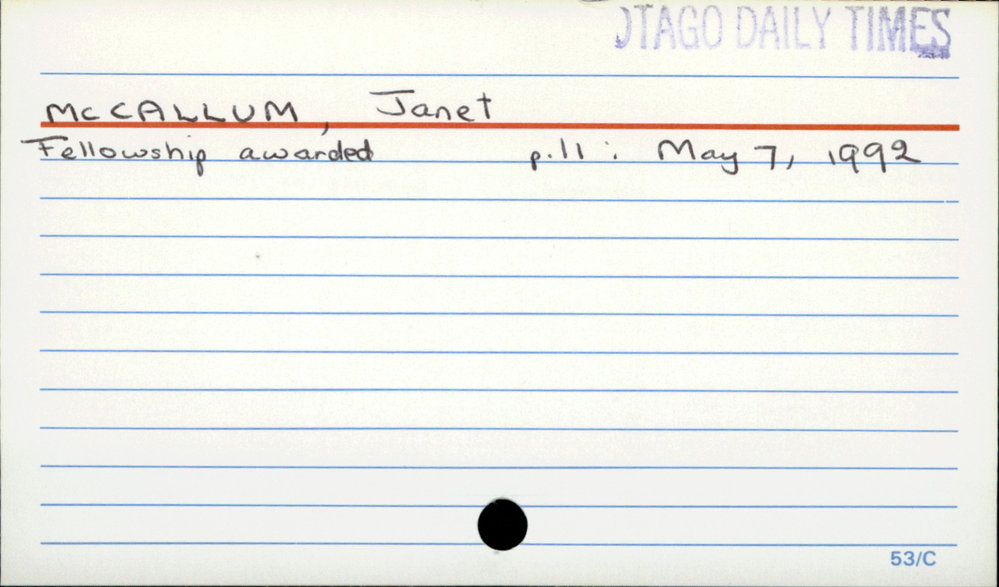 OTAGO DAILY TIMES
McCALLUM, Janet
Fellowship awarded p.11 : May 7, 1992
53/C